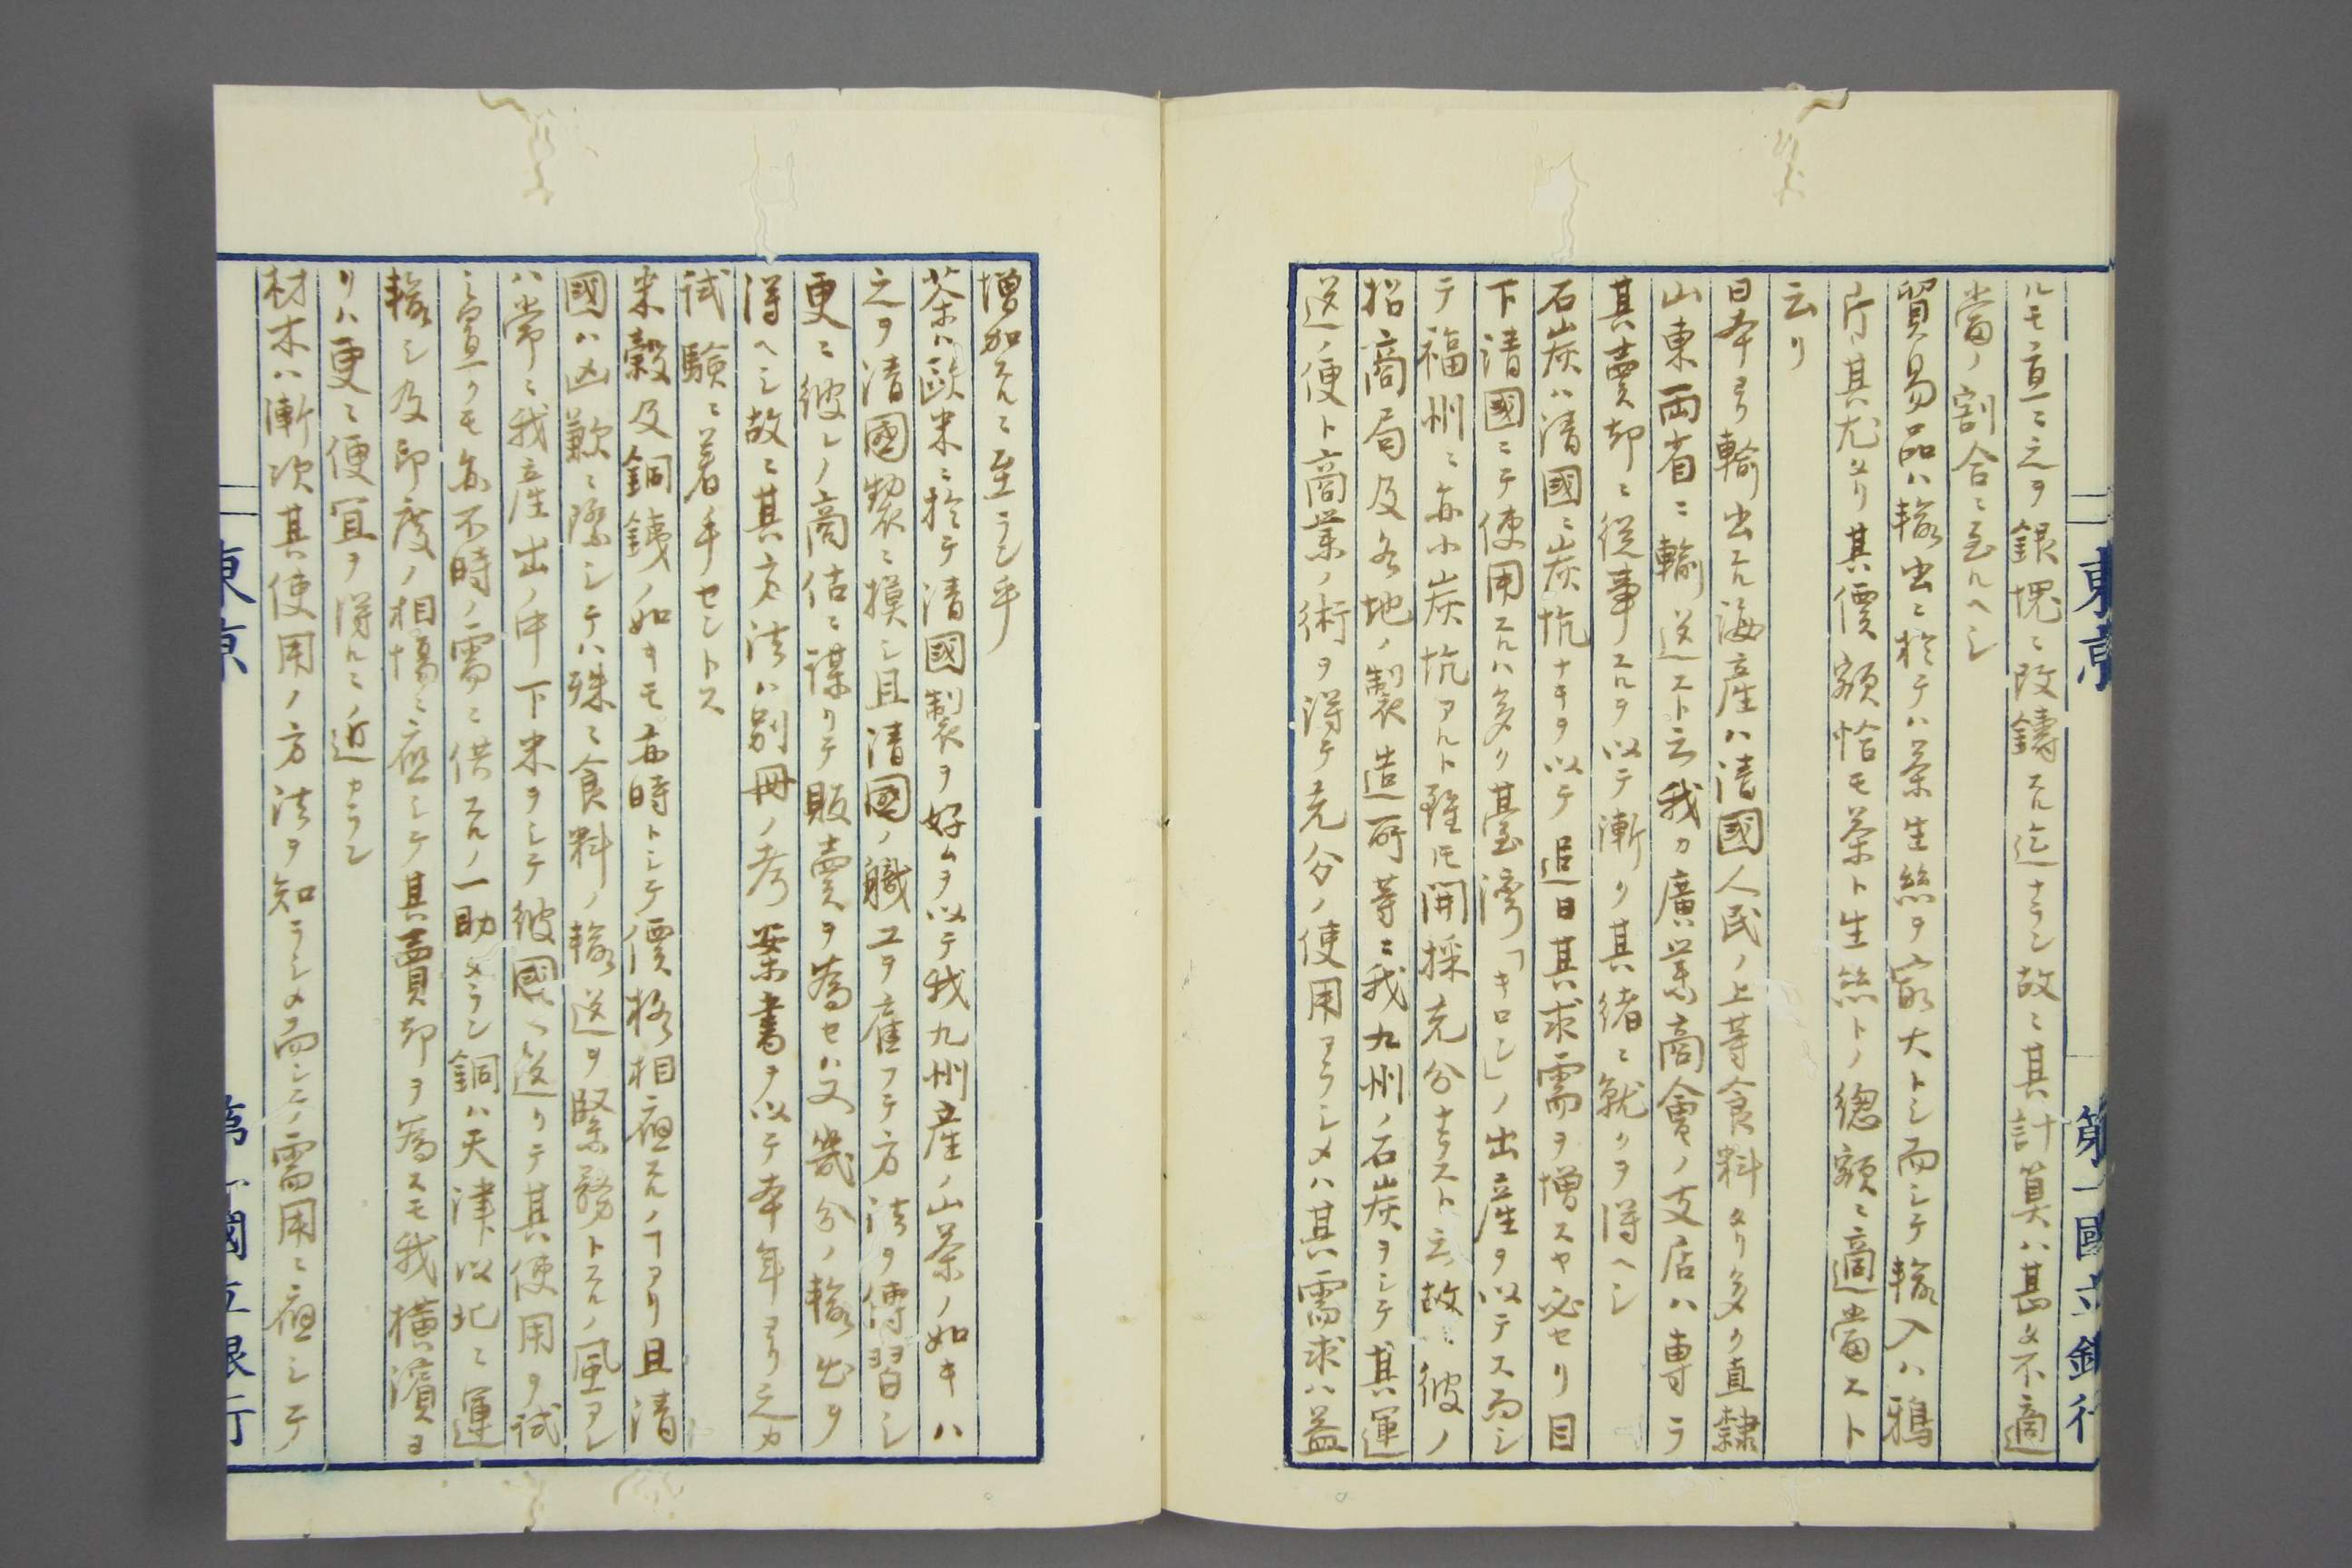 ルモ直ニ之ヲ銀塊ニ改鑄スル迄ナラン故ニ其計算ハ甚タ不適
當ノ割合ニ至ルヘシ
貿易品ハ輸出ニ於テハ茶生絲ヲ最大トシ而シテ輸入ハ鴉
片其尤タリ其價額恰モ茶ト生絲トノ總額ニ適當スト
云リ
日本ヨリ輸出スル海産ハ清國人民ノ上等食料タリ多ク直隸
山東兩省ニ輸送スト云我カ廣業商會ノ支店ハ專ラ
其賣却ニ從事スルヲ以テ漸ク其緒ニ就クヲ得ヘシ
石炭ハ清國ニ炭坑ナキヲ以テ追日其求需ヲ增スヤ必セリ目
下清國ニテ使用スルハ多ク臺湾「キロン」ノ出産ヲ以テス而シ
テ福州ニ亦小炭坑アルト雖モ開採充分ナラスト云故ニ彼ノ
招商局及各地ノ製造所等ニ我九州ノ石炭ヲシテ其運
送ノ便ト商業ノ術ヲ得テ充分ノ使用アラシメハ其需求ハ益
增加スルニ至ラン乎
茶ハ歐米ニ於テ清國製ヲ好ムヲ以テ我九州産ノ山茶ノ如キハ
之ヲ清國製ニ摸シ且清國ノ職工ヲ雇フテ方法ヲ傳習シ
更ニ彼レノ商估ニ謀リテ販賣ヲ爲セハ又幾分ノ輸出ヲ
得ヘシ故ニ其方法ハ別冊ノ考案書ヲ以テ本年ヨリ之カ
試驗ニ着手セントス
米穀及銅錢ノ如キモ亦時トシテ價格相應スルノ𪜈アリ且清
國ハ凶歉ニ際シテハ殊ニ食料ノ輸送ヲ緊務トスルノ風アレ
ハ常ニ我産出ノ中下米ヲシテ彼國ヘ送リテ其使用ヲ試
ミ置クモ亦不時ノ需ニ供スルノ一助タラン銅ハ天津以北ニ運
輸シ及印度ノ相場ニ應シテ其賣却ヲ爲スモ我横濱ヨ
リハ更ニ便宜ヲ得ルニ近カラン
材木ハ漸次其使用ノ方法ヲ知ラシメ而シテ需用ニ應シテ
東京 第一國立銀行
東京 第一國立銀行